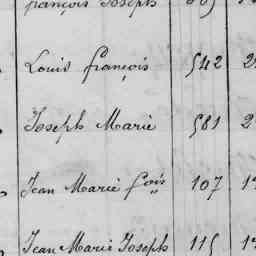 françois Joseph
Louis françois 542 2
Joseph Marie 581 2
Jean Marie fçois 107 1
Jean Marie Joseph 115 1